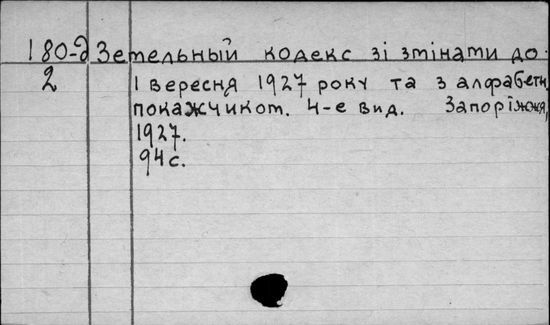 180-д Зетельный кодекс зі змінати до
2 1 вересня 1927 року та з алфабетн.
покажчикот. 4-е вид. Запоріжжя,
1927.
94 с.